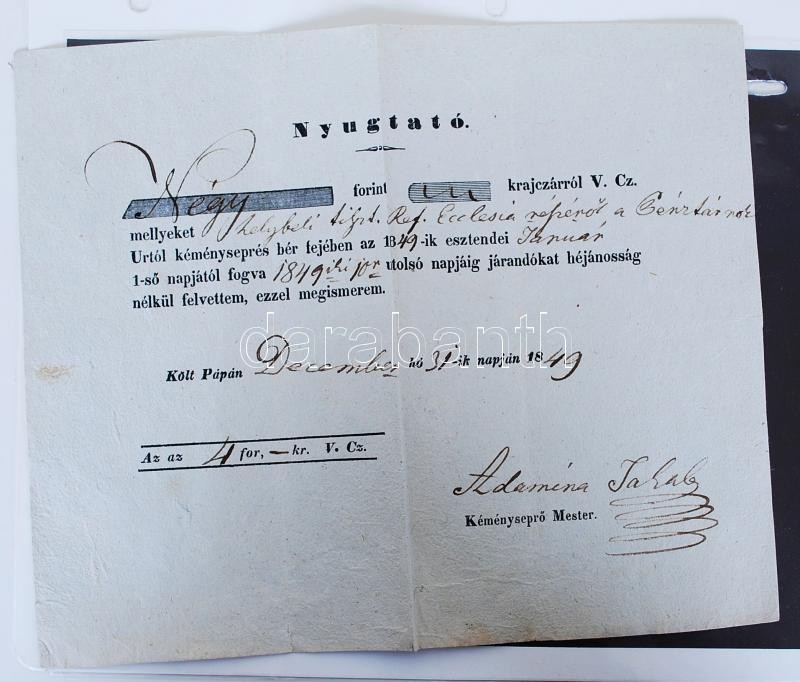 Nyugtató.
Négy forint krajczárról V. Cz.
mellyeket helybeli Ref. Ecclesia részéről a Pénztárnok
Urtól kéményseprés bér fejében az 1849-ik esztendei Január
1-ső napjától fogva 1849iki utolsó napjáig járandókat héjánosság
nélkül felvettem, ezzel megismerem.
darabanth
Költ Pápán December hó 31-ik napján 1849
Az az 4 for, — kr. V. Cz.
Adamina Jakab
Kéményseprő Mester.